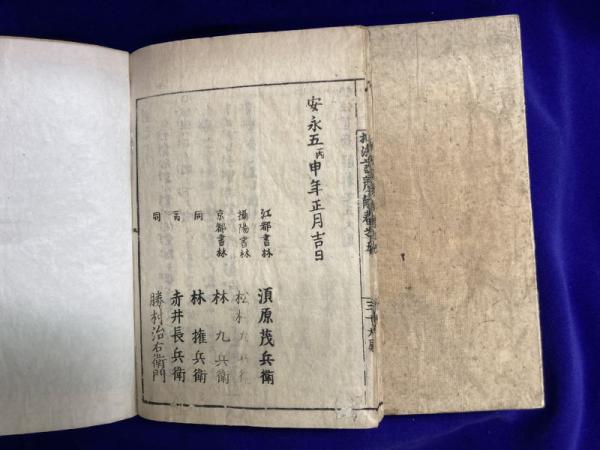 安永五丙申年正月吉日
江都書林 須原茂兵衛
攝陽書林 松村九兵衛
京都書林 林九兵衛
同 林權兵衛
同 赤井長兵衛
同 勝村治右衛門